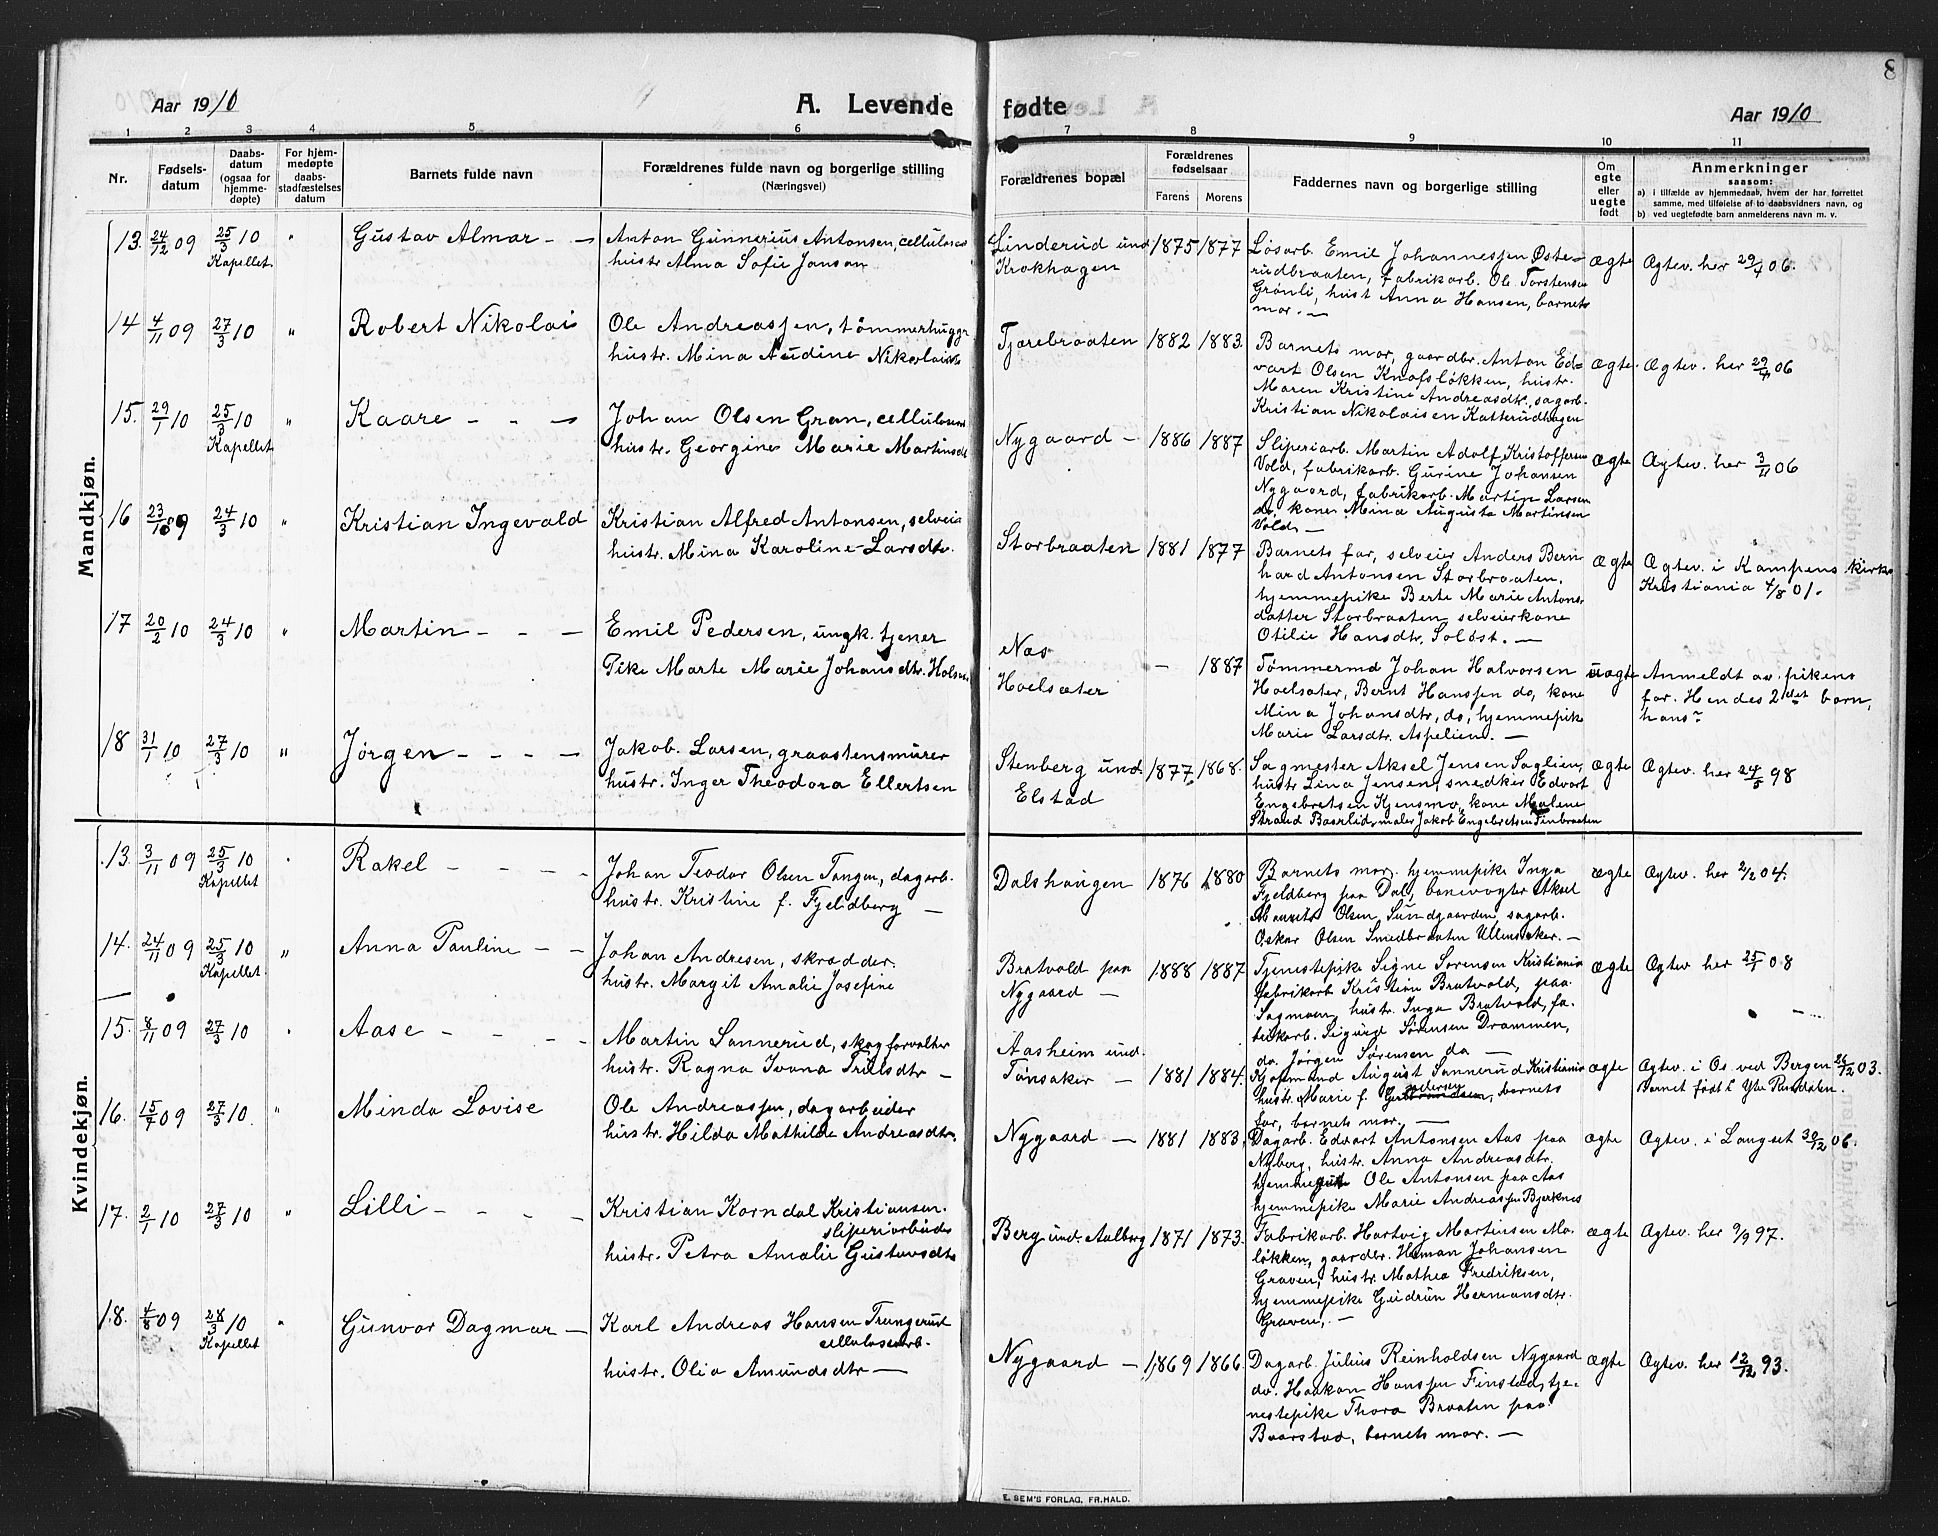 8
Aar 1910
A. Levende fødte
Aar 1910
1 2 3 4 5 6 7 8 9 10 11
Nr.
Fødsels-
datum
Daabs-
datum
(ogsaa for
hjemme-
døpte)
For hjem-
medøpte
daabs-
stadfæstelses
datum
Barnets fulde navn
Forældrenes fulde navn og borgerlige stilling
(Næringsvei)
Forældrenes bopæl
Forældrenes
fødselsaar
Farens Morens
Faddernes navn og borgerlige stilling
Om
egte
eller
uegte
født
Anmerkninger
saasom:
a) i tilfælde av hjemmedaab, hvem der har forrettet
samme, med tilføielse af to daabsvidners navn, og
b) ved uegtefødte barn anmelderens navn m. v.
Mandkjøn.
13. 24/12 09 25/3 10 " Gustav Almar - -
Kapellet
Anton Gunnerius Antonsen, cellulosearb
hustr Alma Sofie Jansen
Linderud und
Krokhagen
1875 1877
Løsarb. Emil Johannessen Øste-
rudbraaten, fabrikarb. Ole Torstensen
Grønli, hust Anna Hansen, barnets
mor. -
ægte
Ægtev. her 29/4 06.
14 4/11 09 27/3 10 " Robert Nikolai
Ole Andreassen, tømmerhugger
hustr. Mina Audine Nikolaisdtr
Tjærebraaten
1882 1883.
Barnets mor, gaardbr. Anton Ed-
vart Olsen Knofsløkken, hustr.
Maren Kristine Andreasdtr, sagarb.
Kristian Nikolaisen Katterudhagen
ægte.
Ægtev. her 29/4 06
15. 29/1 10 25/3 10 " Kaare - - -
Kapellet
Johan Olsen Gran, cellulosearb
hustr. Georgine Marie Martinsdtr
Nygaard -
1886 1887
Sliperiarb. Martin Adolf Kristoffersen
Vold, fabrikarb. Gurine Johansen
Nygaard, fabrikarb. Martin Larsen
do, kone Mina Augusta Martinsen
Vold. -
ægte
Ægtev. her 3/11 06
16 23/10 09 24/3 10 " Kristian Ingevald
Kristian Alfred Antonsen, selveier
hustr. Mina Karoline Larsdtr.
Storbraaten
1881 1877
Barnets far, selveier Anders Bern
hard Antonsen Storbraaten,
hjemmepike Berte Marie Antons-
datter Storbraaten, selveierkone
Otilie Hansdtr. Solost. -
ægte
Ægtev. i Kampens kirke
Kristiania 4/8 01.
17 20/2 10 24/3 10 " Martin - - -
Emil Pedersen, ungk. tjener
Pike Marte Marie Johansdtr. Holsæter
Næs
Hoelsæter
- 1887
Tømmermd Johan Halvorsen
Hoelsæter, Bernt Hanssen do, kone
Mina Johansdtr, do, hjemmepike
Marie Larsdtr. Aspelien. -
uægte
Anmeldt av pikens
far. Hendes 2det barn,
hans ?
18 31/1 10 27/3 10 " Jørgen - - - -
Jakob Larsen, graastensmurer
hustr. Inger Theodora Ellertsen
Stenberg und.
Elstad
1877. 1868.
Sagmester Aksel Jensen Saglien,
hustr Lina Jensen, snedker Edvart
Engebretsen Kjensmo, kone Malene
Strand Baarlid, maler Jakob Engebretsen Finbraaten
ægte
Ægtev. her 24/5 98
Kvindekjøn.
13. 3/11 09 25/3 10 " Rakel - - - -
Kapellet
Johan Teodor Olsen Tangen, dagarb.
hustr. Kristine f. Fjeldberg -
Dalshaugen
1876 1880
Barnets mor, hjemmepike Inga
Fjeldberg paa Dal, banevogter Aksel
Maurits Olsen Sundgaarden, sagarb.
Oskar Olsen Smedbraaten Ullensaker. -
ægte
Ægtev. her 2/2 04.
14. 24/11 09 25/3 10 " Anna Pauline - -
Kapellet.
Johan Andresen, skrædder.
hustr. Margit Amalie Josefine
Bratvold paa
Nygaard -
1888 1887
Tjenestepike Signe Sørensen Kristiania
fabrikarb Kristian Bratvold, paa
Sagmoen, hustr. Inga Bratvold, fa-
brikarb. Sigurd Sørensen Drammen,
do. Jørgen Sørensen do -
ægte
Ægtev her 25/1 08
15. 8/11 09 27/3 10 " Aase - - - -
Martin Sannerud, skogforvalter
hustr. Ragna Ivana Trulsdtr -
Aasheim und.
Tønsaker -
1881 1884.
Kjøpmand August Sannerud Kristiania
hustr. Marie f. Gulbrandsen, barnets
far, barnets mor. -
ægte
Ægtev. i Os ved Bergen 26/12 03.
Barnet født i Ytre Rendalen.
16. 15/7 09 27/3 10. " Minda Lovise
Ole Andreassen, dagarbeider
hustr. Hilda Mathilde Andreasdtr.
Nygaard -
1881 1883.
Dagarb. Edvart Antonsen Aas paa
Nyberg, hustr. Anna Andreasdtr.
Ole Antonsen paa Aas
hjemmepike Marie Andreassen Bjerknes
ægte
Ægtev. i Langset 30/12 06.
17. 2/1 10 27/3 10 " Lilli - - - -
Kristian Korndal Kristiansen.
sliperiarbeider
hustr. Petra Amalie Gustavsdtr
Berg und. Aalberg
1871 1873.
Fabrikarb. Hartvig Martinsen Mo-
løkken, gaardbr. Herman Johansen
Graven, hustr. Mathea Fredriksen,
hjemmepike Gudrun Hermansdtr.
Graven, -
ægte
Ægtev. her 9/9 97.
18. 4/8 09 28/3 10 " Gunvor Dagmar -
Kapellet
Karl Andreas Hansen Trungerud
cellulosearb.
hustr. Olia Amundsdtr -
Nygaard -
1869 1866.
Dagarb. Julius Reinholdsen Nygaard
do. Haakon Hanssen Finstad, tje-
nestepike Thora Braaten paa
Baarstad, barnets mor. -
ægte
Ægtev. her 12/12 93.
E. SEM'S FORLAG, FR.HALD.